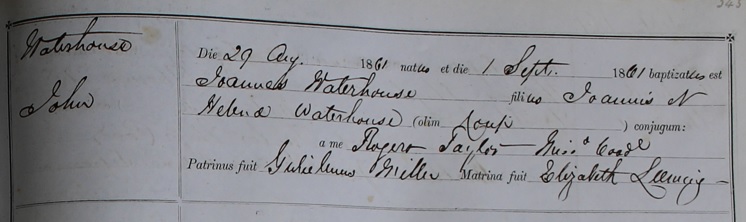 345
Waterhouse
John
Die 29 Aug. 1861 natus et die 1 Sept. 1861 baptizatus est
Joannes Waterhouse filius Joannis N
Helenæ Waterhouse (olim ) conjugum:
a me Rogero Taylor Miss
Patrinus fuit Gulielmus Miller Matrina fuit Elizabeth